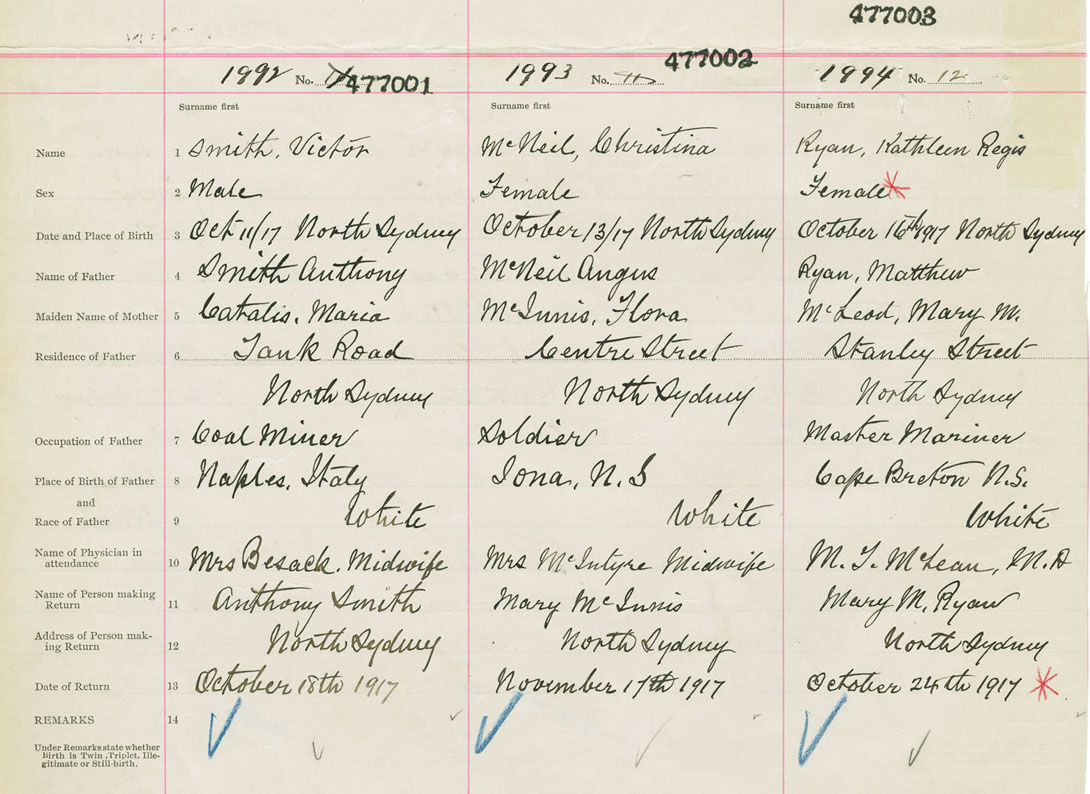 477003
1992 No. 477001
1993 No. 11 477002
1994 No. 12
Surname first Surname first Surname first
Name 1 Smith, Victor McNeil, Christina Ryan, Kathleen Regis
Sex 2 Male Female Female
Date and Place of Birth 3 Oct 11/17 North Sydney October 13/17 North Sydney October 16th 1917 North Sydney
Name of Father 4 Smith Anthony McNeil Angus Ryan, Matthew
Maiden Name of Mother 5 Catalis, Maria McInnis, Flora McLeod, Mary M.
Residence of Father 6 Tank Road Centre Street Stanley Street
North Sydney North Sydney North Sydney
Occupation of Father 7 Coal Miner Soldier Master Mariner
Place of Birth of Father 8 Naples, Italy Iona, N.S Cape Breton N.S.
and
Race of Father 9 White White White
Name of Physician in
attendance 10 Mrs Besack. Midwife Mrs McIntyre Midwife M. T. McLean, M.D
Name of Person making
Return 11 Anthony Smith Mary McInnis Mary M, Ryan
Address of Person mak-
ing Return 12 North Sydney North Sydney North Sydney
Date of Return 13 October 18th 1917 November 17th 1917 October 24th 1917
REMARKS 14
Under Remarks state whether
Birth is Twin, Triplet, Ille-
gitimate or Still-birth.